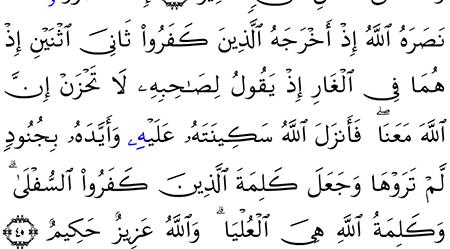 نَصَرَهُ ٱللَّهُ إِذْ أَخْرَجَهُ ٱلَّذِينَ كَفَرُوا۟ ثَانِىَ ٱثْنَيْنِ إِذْ
هُمَا فِى ٱلْغَارِ إِذْ يَقُولُ لِصَـٰحِبِهِۦ لَا تَحْزَنْ إِنَّ
ٱللَّهَ مَعَنَا ۖ فَأَنزَلَ ٱللَّهُ سَكِينَتَهُۥ عَلَيْهِۦ وَأَيَّدَهُۥ بِجُنُودٍ
لَّمْ تَرَوْهَا وَجَعَلَ كَلِمَةَ ٱلَّذِينَ كَفَرُوا۟ ٱلسُّفْلَىٰ ۗ
وَكَلِمَةُ ٱللَّهِ هِىَ ٱلْعُلْيَا ۗ وَٱللَّهُ عَزِيزٌ حَكِيمٌ ٤٠